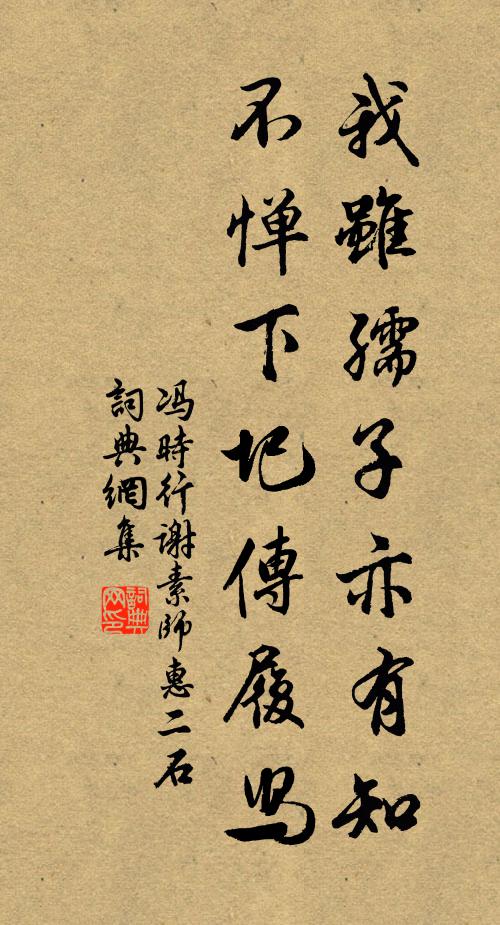 我雖孺子亦有知
不惮下圮傳履舄
冯時行谢素師惠二石
詞典網集
詞典网印